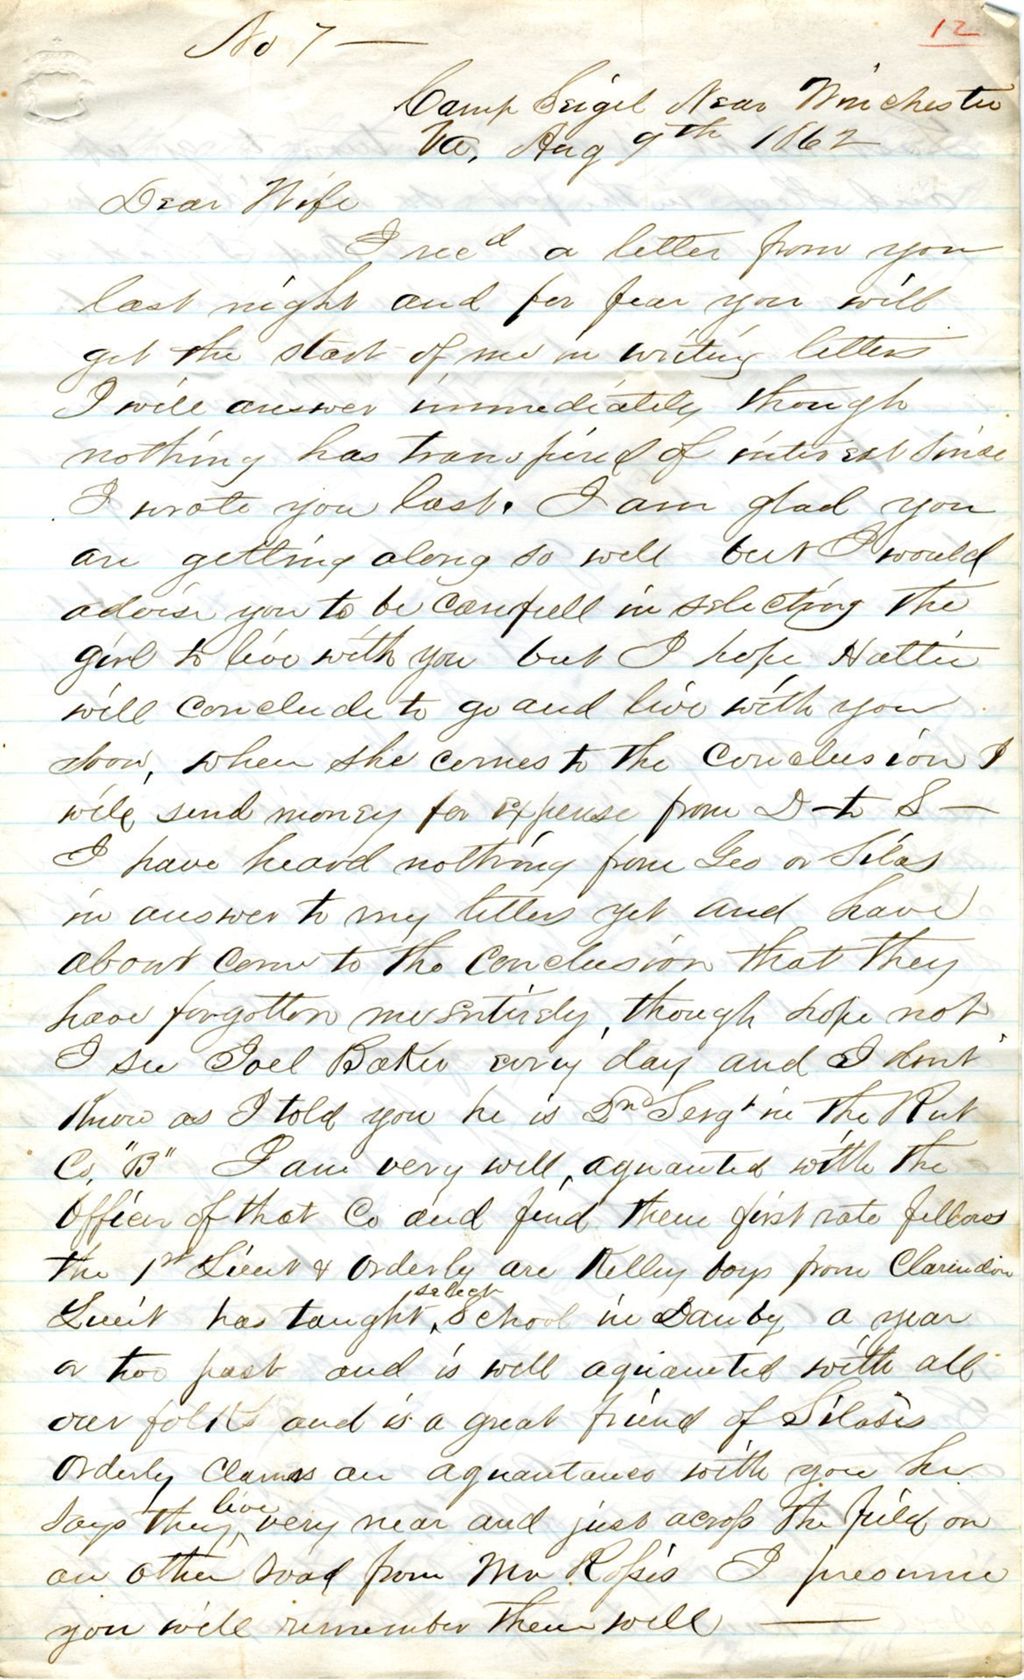 No 7 —
12
Camp Seigel Near Winchester
Va, Aug 9th 1862
Dear Wife
I recd a letter from you
last night and for fear you will
get the start of me in writing letters
I will answer immediately though
nothing has transpired of interest since
I wrote you last. I am glad you
are getting along so well but I would
advise you to be carefull in selecting the
girl to live with you but I hope Hattie
will conclude to go and live with you
soon, when she comes to the conclusion I
will send money for expense from D — to S —
I have heard nothing from Geo or Silas
in answer to my letters yet and have
about come to the conclusion that they
have forgotton me entirely, though hope not
I see Joel Baker every day and I dont
know as I told you he is 2nd Sergt in the Rut
Co, "B" I am very well aquanted with the
officers of that Co and find them first rate fellows
the 1st Lieut & Orderly are Kelley boys from Clarendon
Lieut has taught select School in Danby a year
or two past and is well aquanted with all
our folks and is a great friend of Silas's
Orderly Claims an aquantance with you he
says they live very near and just across the field on
an other road from Mr Ross's I presume
you will remember them well —